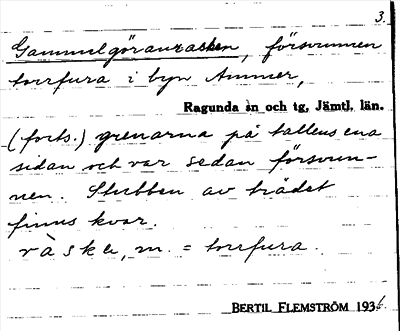 3.
Gammelgöranrasken, försvunnen
torrfura i byn Ammer,
Ragunda sn och tg, Jämtl. län.
(forts.) grenarna på tallens ena
sidan och var sedan försvun-
nen. Stubben av trädet
finns kvar.
ràske, m. = torrfura.
BERTIL FLEMSTRÖM 1936.